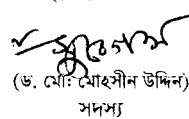 (ড. মোঃ মোহসীন উদ্দিন)
সদস্য